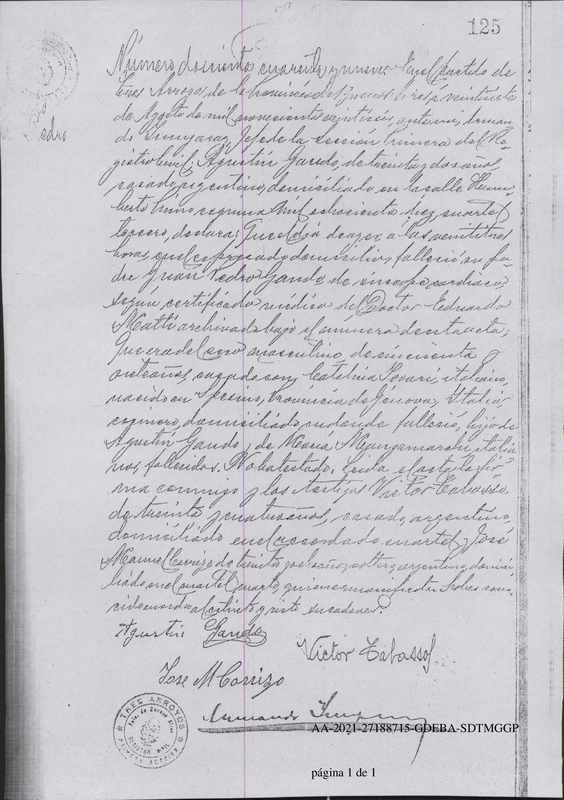 125
Número doscientos cuarenta y nueve. En el partido de
Tres Arroyos de la Provincia de Buenos Aires a veintisiete
de Agosto de mil novecientos veintiseis, ante mi, Arman
do Jefe de la Sección Primera del Re
gistro Civil; Agustín Gando, de treinta y dos años,
casado, argentino, domiciliado en la calle Hum
berto Primo esquina Mil ochocientos diez, cuartel
tercero, declara: Que el dia de ayer a las veintitres
horas, en el expresado domicilio, falleció su pa
dre Juan Pedro Gando de síncope cardíaco,
según certificado médico del Doctor Eduardo
archivado bajo el número de esta acta;
Que era del sexo masculino, de cincuenta y
años, casado con Catalina italiano,
nacido en Provincia de Genova, Italia,
domiciliado donde falleció, hijo de
Agustín Gando y de María italia
nos, fallecidos. No ha testado. Leida el acta la fir
ma conmigo y los testigos Victor Tabasso
de treinta y cuatro años, casado, argentino,
domiciliado en el recordado cuartel, y José
Manuel Carrizo de treinta años, soltero, argentino, domici
liado en el cuartel cuarto, quienes manifiestan haber cono
cido en vida al extinto y visto su cadaver.
Agustin Gando
Victor Tabasso
Jose M Carrizo
Armando
TRES ARROYOS
REGISTRO CIVIL
AA-2021-27188715-GDEBA-SDTMGGP
página 1 de 1